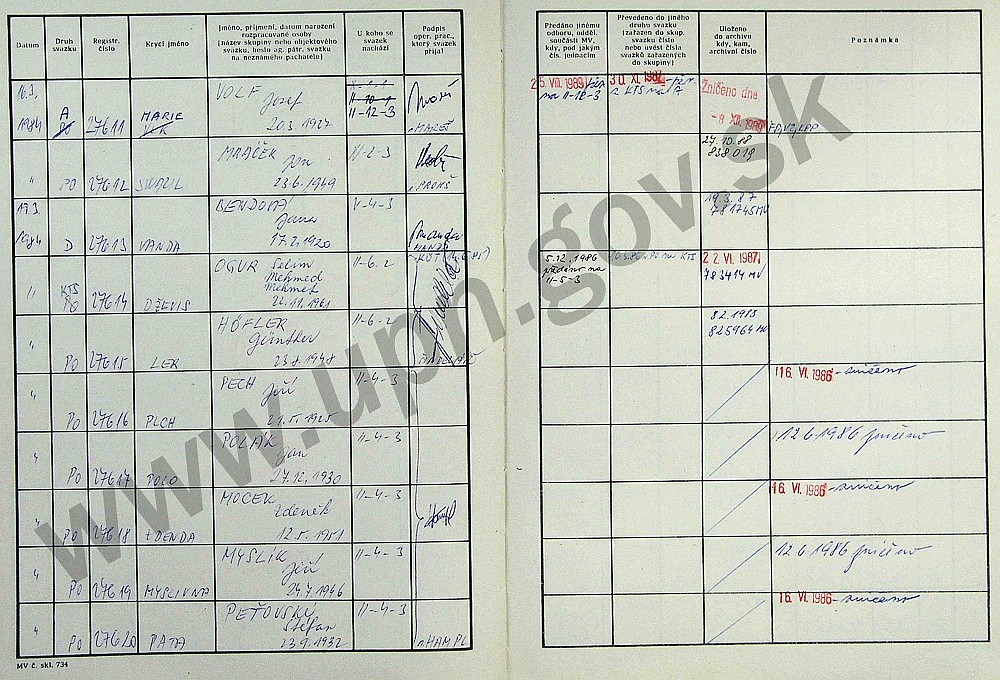 Datum
Druh svazku
Registr. číslo
Krycí jméno
Jméno, příjmení, datum narození
rozpracované osoby
(název skupiny nebo objektového
svazku, heslo ag. pátr. svazku
na neznámého pachatele)
U koho se
svazek
nachází
Podpis
oper. prac.,
který svazek
přijal
Předáno jinému
odboru, odděl.
součásti MV,
kdy, pod jakým
čís. jednacím
Převedeno do jiného
druhu svazku
(zařazen do skup.
svazku číslo
nebo uvést čísla
svazků zařazených
do skupiny)
Uloženo
do archivu
kdy, kam,
archivní číslo
Poznámka
16.3. 1984 A 27611 MARIE VOLF Josef 20.3.1927 II-12-3 MAREŠ
25. VIII. 1989 na II-12-3
Zničeno dne
- 8 XII. 1989
" PO 27612 MRÁČEK Jan 23.6.1949 II-2-3
27.10.88
838 019
19.3. 1984 D 27613 VANDA Jana 17.2.1920 V-4-3
19.3.87
781745 MV
" KTS PO 27614 DŽEVIS OGUR Selim Mehmed Mehmet 22.11.1961 II-6-2
5.12.1986
předáno na
II-5-3
22. VI. 1987
783414 MV
PO 27615 LER HÖFLER Günther 23.8.1948 II-6-2
825964 MV
" PO 27616 PLCH PECH Jiří 21.5.1925 II-4-3
16. VI. 1986 - zničeno
" PO 27617 POLO POLÁK Jan 27.12.1930 II-4-3
12.6.1986 zničeno
" PO 27618 ZDENDA MOCEK Zdeněk 12.5.1951 II-4-3
16. VI. 1986 - zničeno
" PO 27619 MYSLIVNA MYSLÍK Jiří 24.7.1946 II-4-3
12.6.1986 zničeno
" PO 27620 PATA PEŤOVSKÝ Štefan 23.9.1932 II-4-3 HAMPL
16. VI. 1986 - zničeno
MV č. skl. 734
www.upn.gov.sk